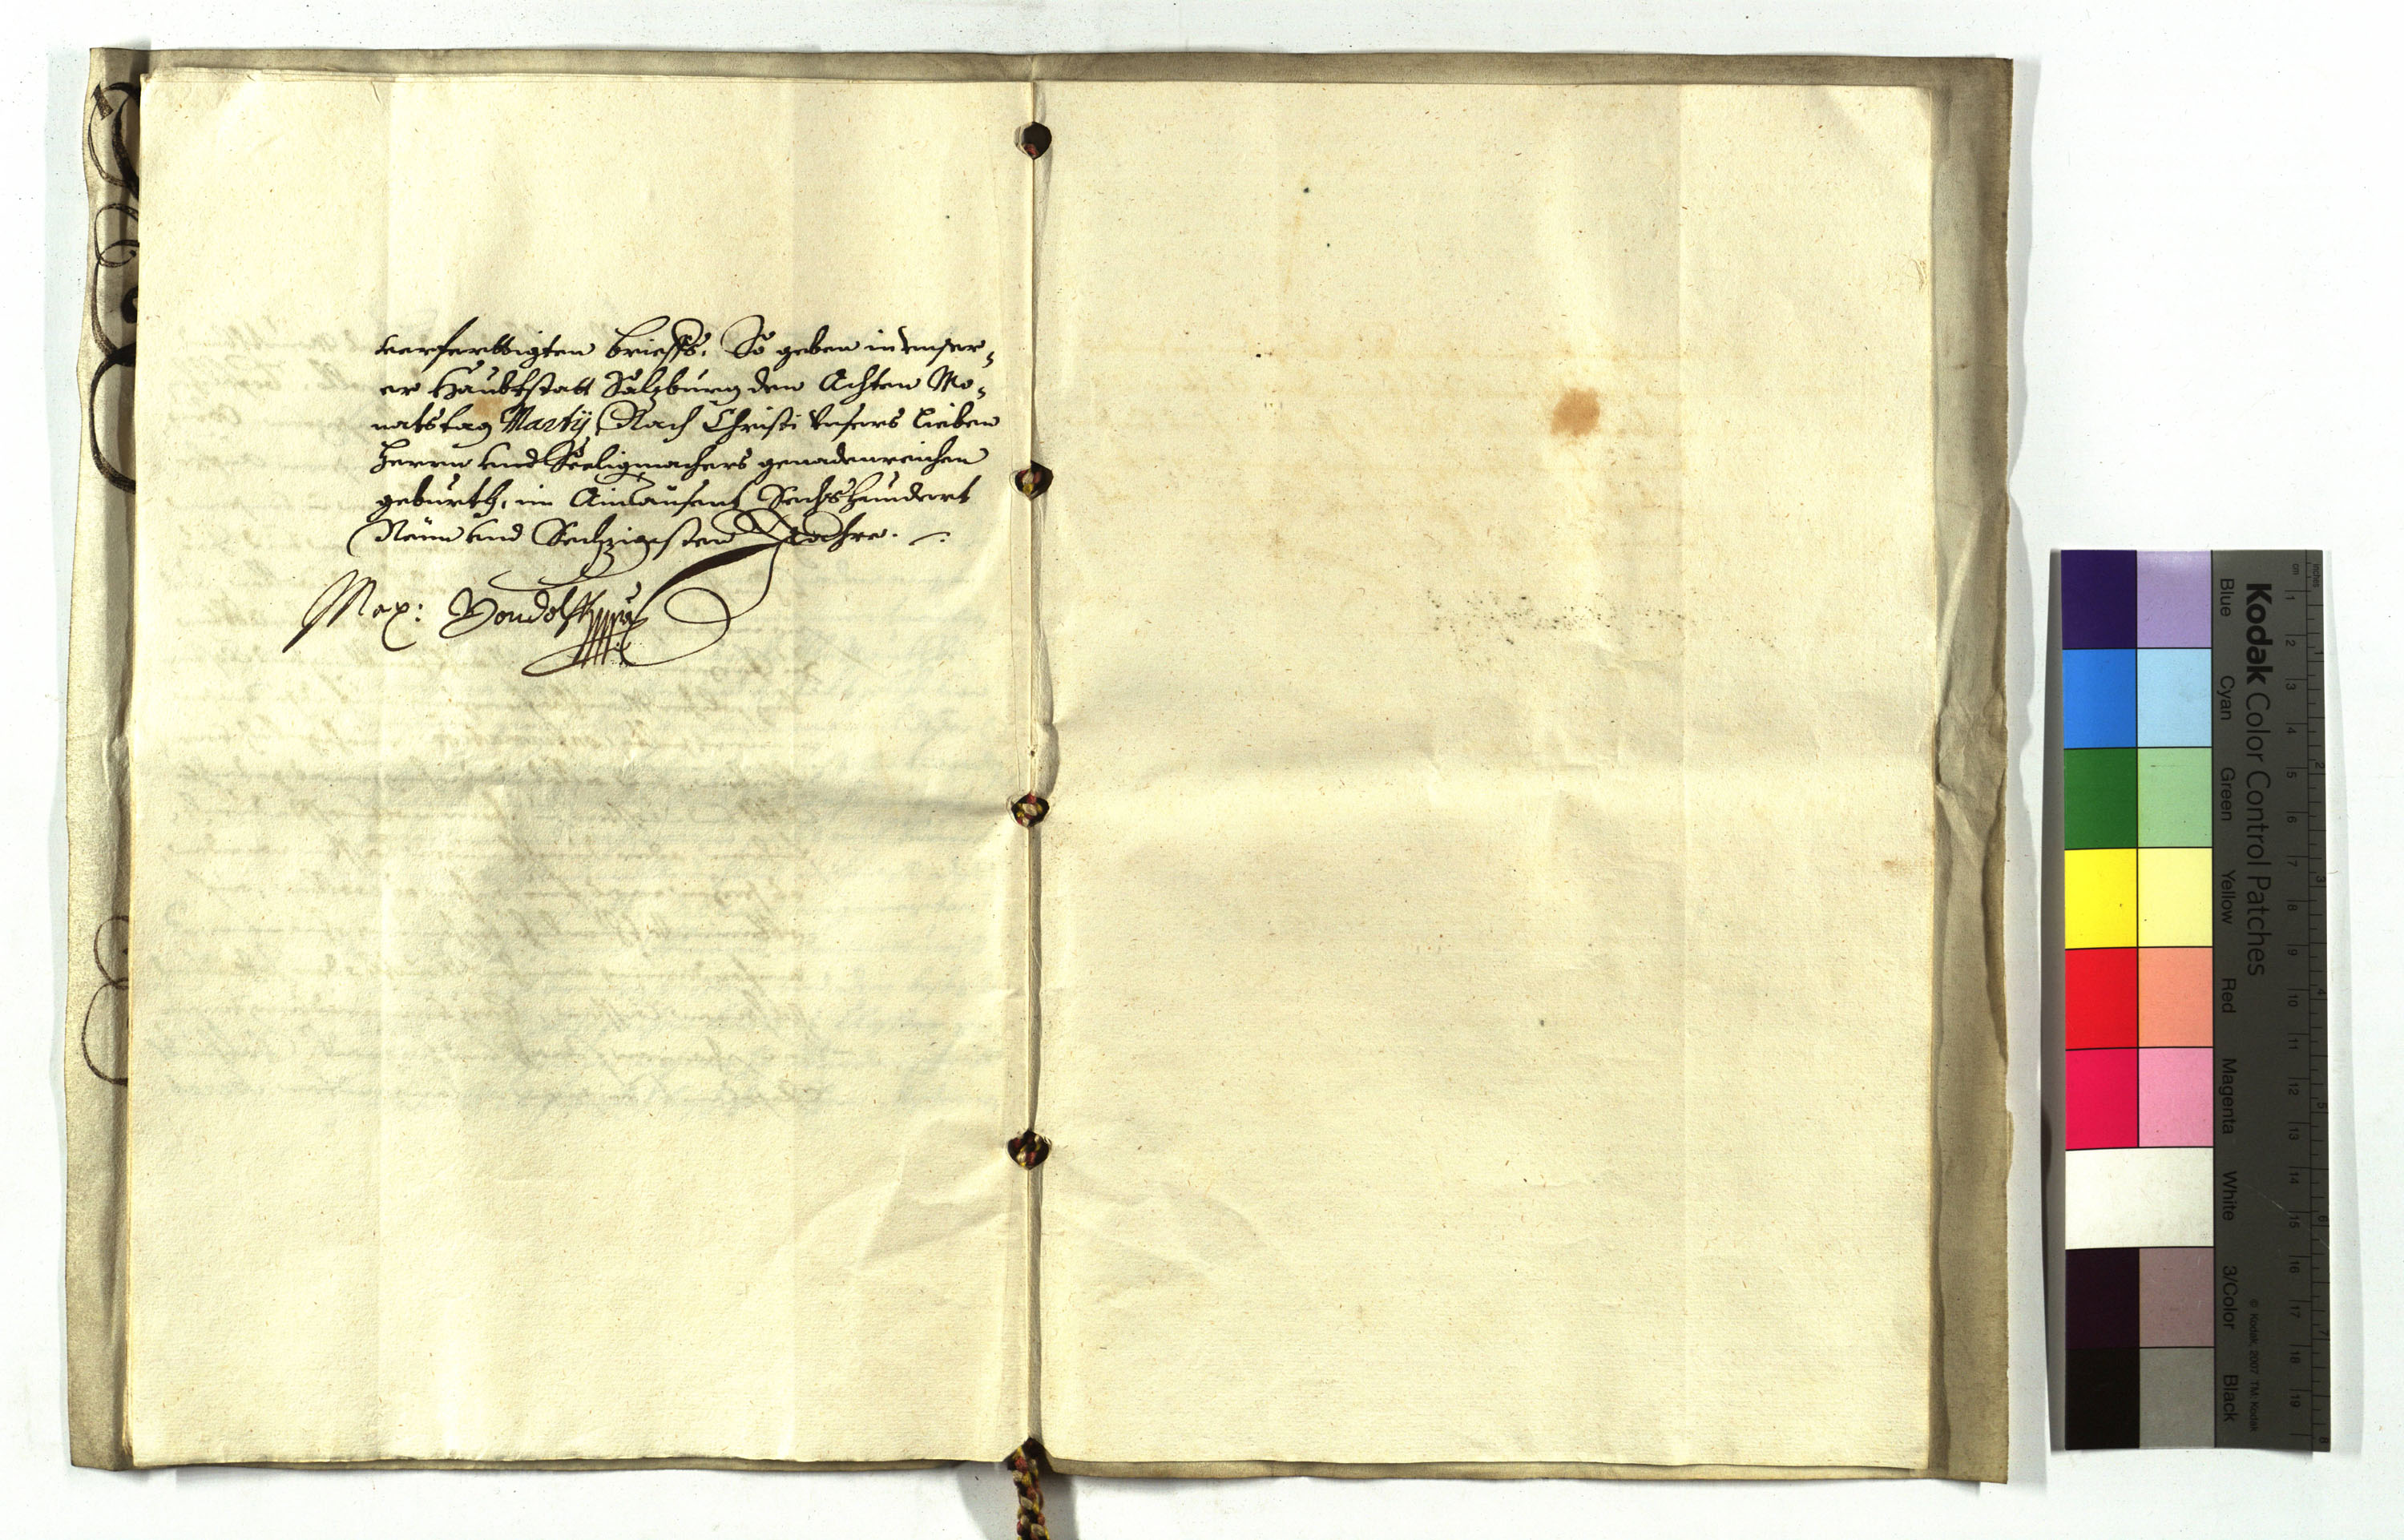 verferttigten brieffs. So geben in vnser-
er Haubtstatt Salzburg den Achten Mo-
natstag Martij, Nach Christi vnsers lieben
Herrn vnd Seeligmachers genadenreichen
geburth, im Aintausent Sechshundert
Neün vnd Sechzigisten Jahre.
Max: Gandolph
Kodak Color Control Patches
Blue Cyan Green Yellow Red Magenta White 3/Color Black
© Kodak, 2007 TM: Kodak
cm 1 2 3 4 5 6 7 8 9 10 11 12 13 14 15 16 17 18 19
inches 1 2 3 4 5 6 7 8